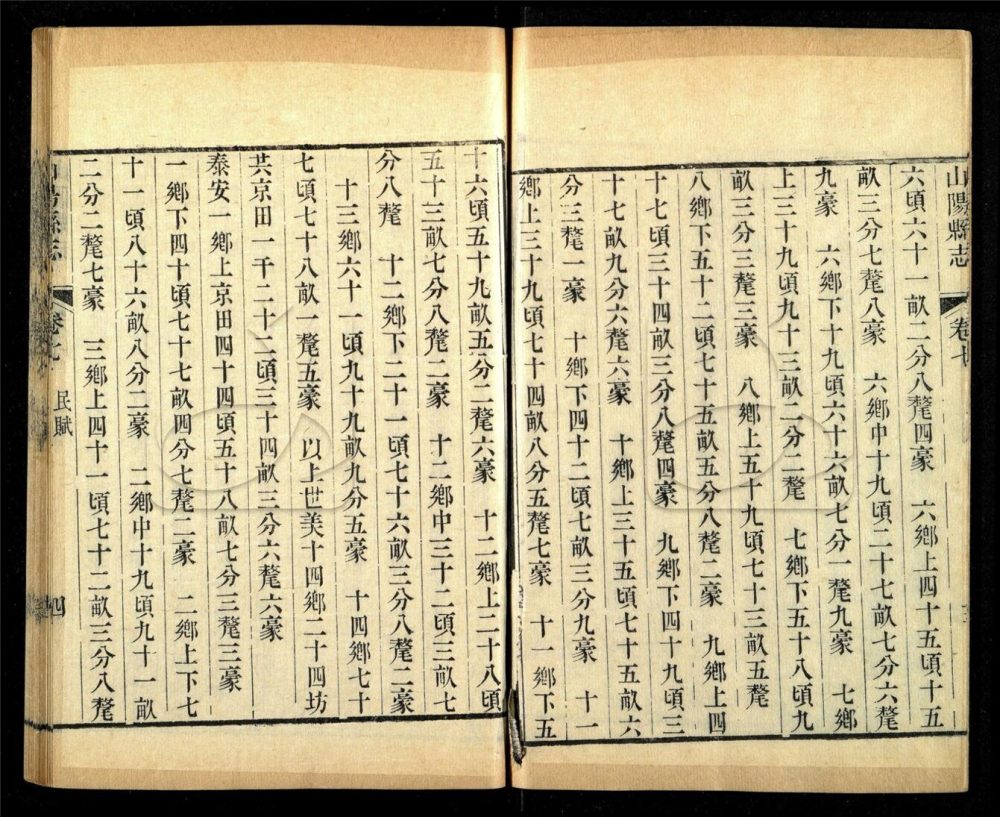 山陽縣志
卷七
六頃六十一畝二分八釐四豪　六鄉上四十五頃十五
畝三分七釐八豪　六鄉中十九頃二十七畝七分六釐
九豪　六鄉下十九頃六十六畝七分一釐九豪　七鄉
上三十九頃九十三畝二分二釐　七鄉下五十八頃九
畝三分三釐三豪　八鄉上五十九頃七十三畝五釐
八鄉下五十二頃七十五畝五分八釐二豪　九鄉上四
十七頃三十四畝三分八釐四豪　九鄉下四十九頃三
十七畝九分六釐六豪　十鄉上三十五頃七十五畝六
分三釐一豪　十鄉下四十二頃七畝三分九豪　十一
鄉上三十九頃七十四畝八分五釐七豪　十一鄉下五
十六頃五十九畝五分二釐六豪　十二鄉上二十八頃
五十三畝七分八釐二豪　十二鄉中三十二頃三畝七
分八釐　十二鄉下二十一頃七十六畝三分八釐二豪
十三鄉六十一頃九十九畝九分五豪　十四鄉七十
七頃七十八畝一釐五豪　以上世美十四鄉二十四坊
共京田一千二十二頃三十四畝三分六釐六豪
泰安一鄉上京田四十四頃五十八畝七分三釐三豪
一鄉下四十頃七十七畝四分七釐二豪　二鄉上下七
十一頃八十六畝八分二豪　二鄉中十九頃九十一畝
二分二釐七豪　三鄉上四十一頃七十二畝三分八釐
山陽縣志
卷七
民賦
四